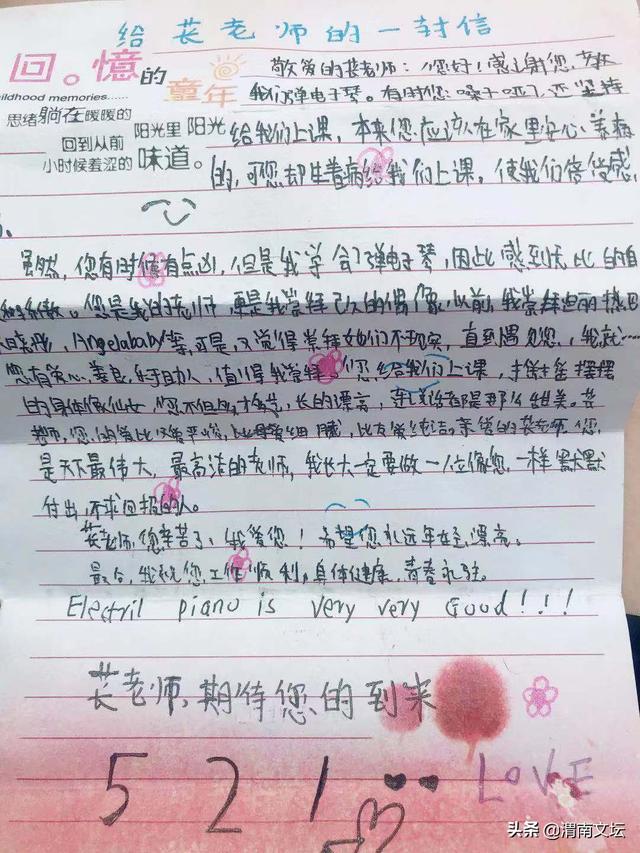 给苌老师的一封信
回。憶的
童年
childhood memories......
思绪躺在暖暖的
回到从前
小时候羞涩的
阳光里 阳光
味道。
敬爱的苌老师：您好！感谢您，教
我们弹电子琴。有时您嗓子哑了，还坚持
给我们上课，本来您应该在家里安心养病
的，可您却生着病给我们上课，使我们倍受感
虽然，您有时候有点凶，但是我学会了弹电子琴，因此感到无比的自
您是我的老师，更是我崇拜已久的偶像，以前，我崇拜迪丽热巴
Angelababy等，可是，又觉得崇拜她们不现实，直到遇见您，我就……
您有爱心、善良、乐于助人，值得我崇拜，您给我们上课，摇摇摆摆
的身体像仙女，您不但多才多艺，长的漂亮，连说话都是那么甜美。苌
老师，您的爱比父爱严峻，比母爱细腻，比友爱纯洁。亲爱的苌老师，您
是天下最伟大，最高洁的老师，我长大一定要做一位像您一样默默
付出，不求回报的人。
苌老师，您辛苦了，我爱您！希望您永远年轻、漂亮。
最后，我祝您工作顺利，身体健康，青春永驻。
Electril piano is very very Good!!!
苌老师，期待您的到来
5 2 1
LOVE
头条 @渭南文坛